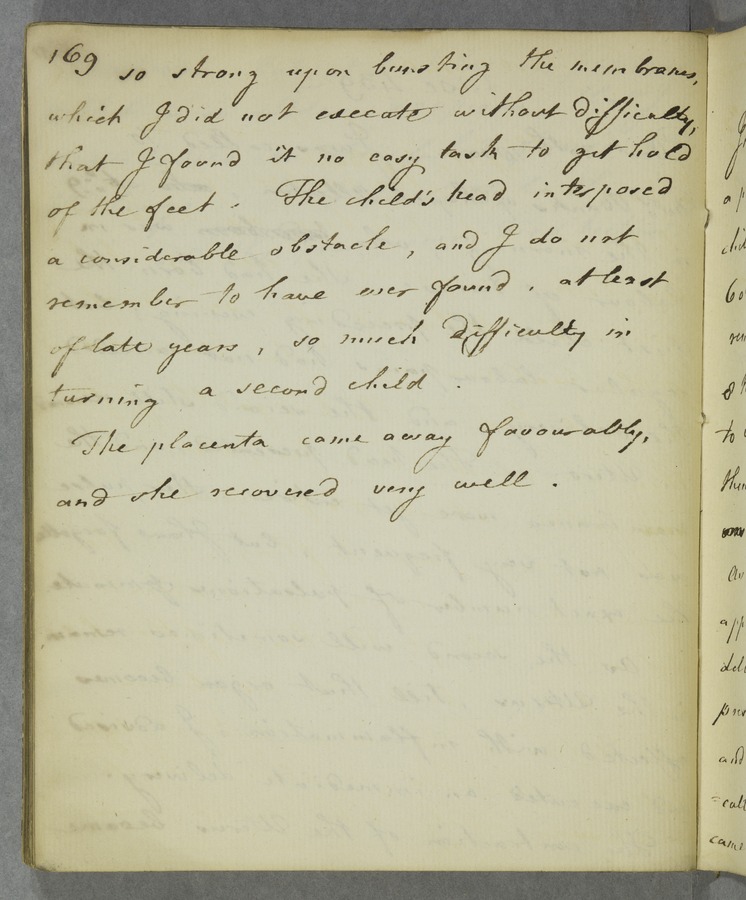 169 so strong upon bursting the membranes,
which I did not execute without difficulty,
that I found it no easy task to get hold
of the feet. The child's head interposed
a considerable obstacle, and I do not
remember to have ever found, at least
of late years, so much difficulty in
turning a second child.
The placenta came away favourably,
and she recovered very well.